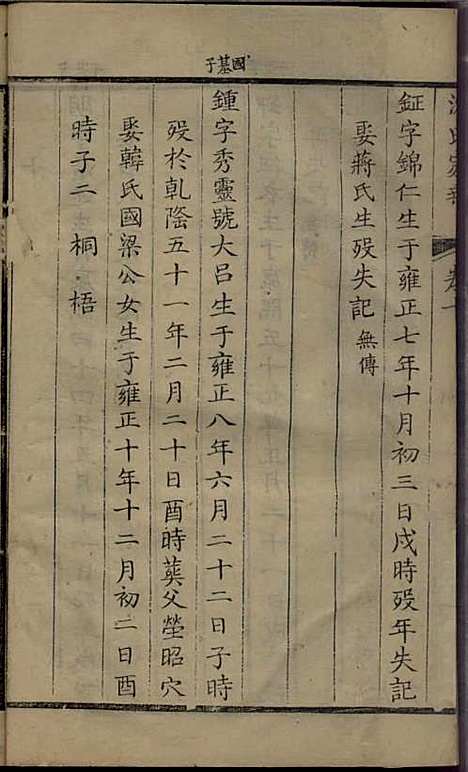 國基子
鉦字錦仁生于雍正七年十月初三日戌時歿年失記
娶蔣氏生歿失記 無傳
鍾字秀靈號大呂生于雍正八年六月二十二日子時
歿於乹隆五十一年二月二十日酉時葬父塋昭穴
娶韓氏國梁公女生于雍正十年十二月初二日酉
時子二 桐 梧